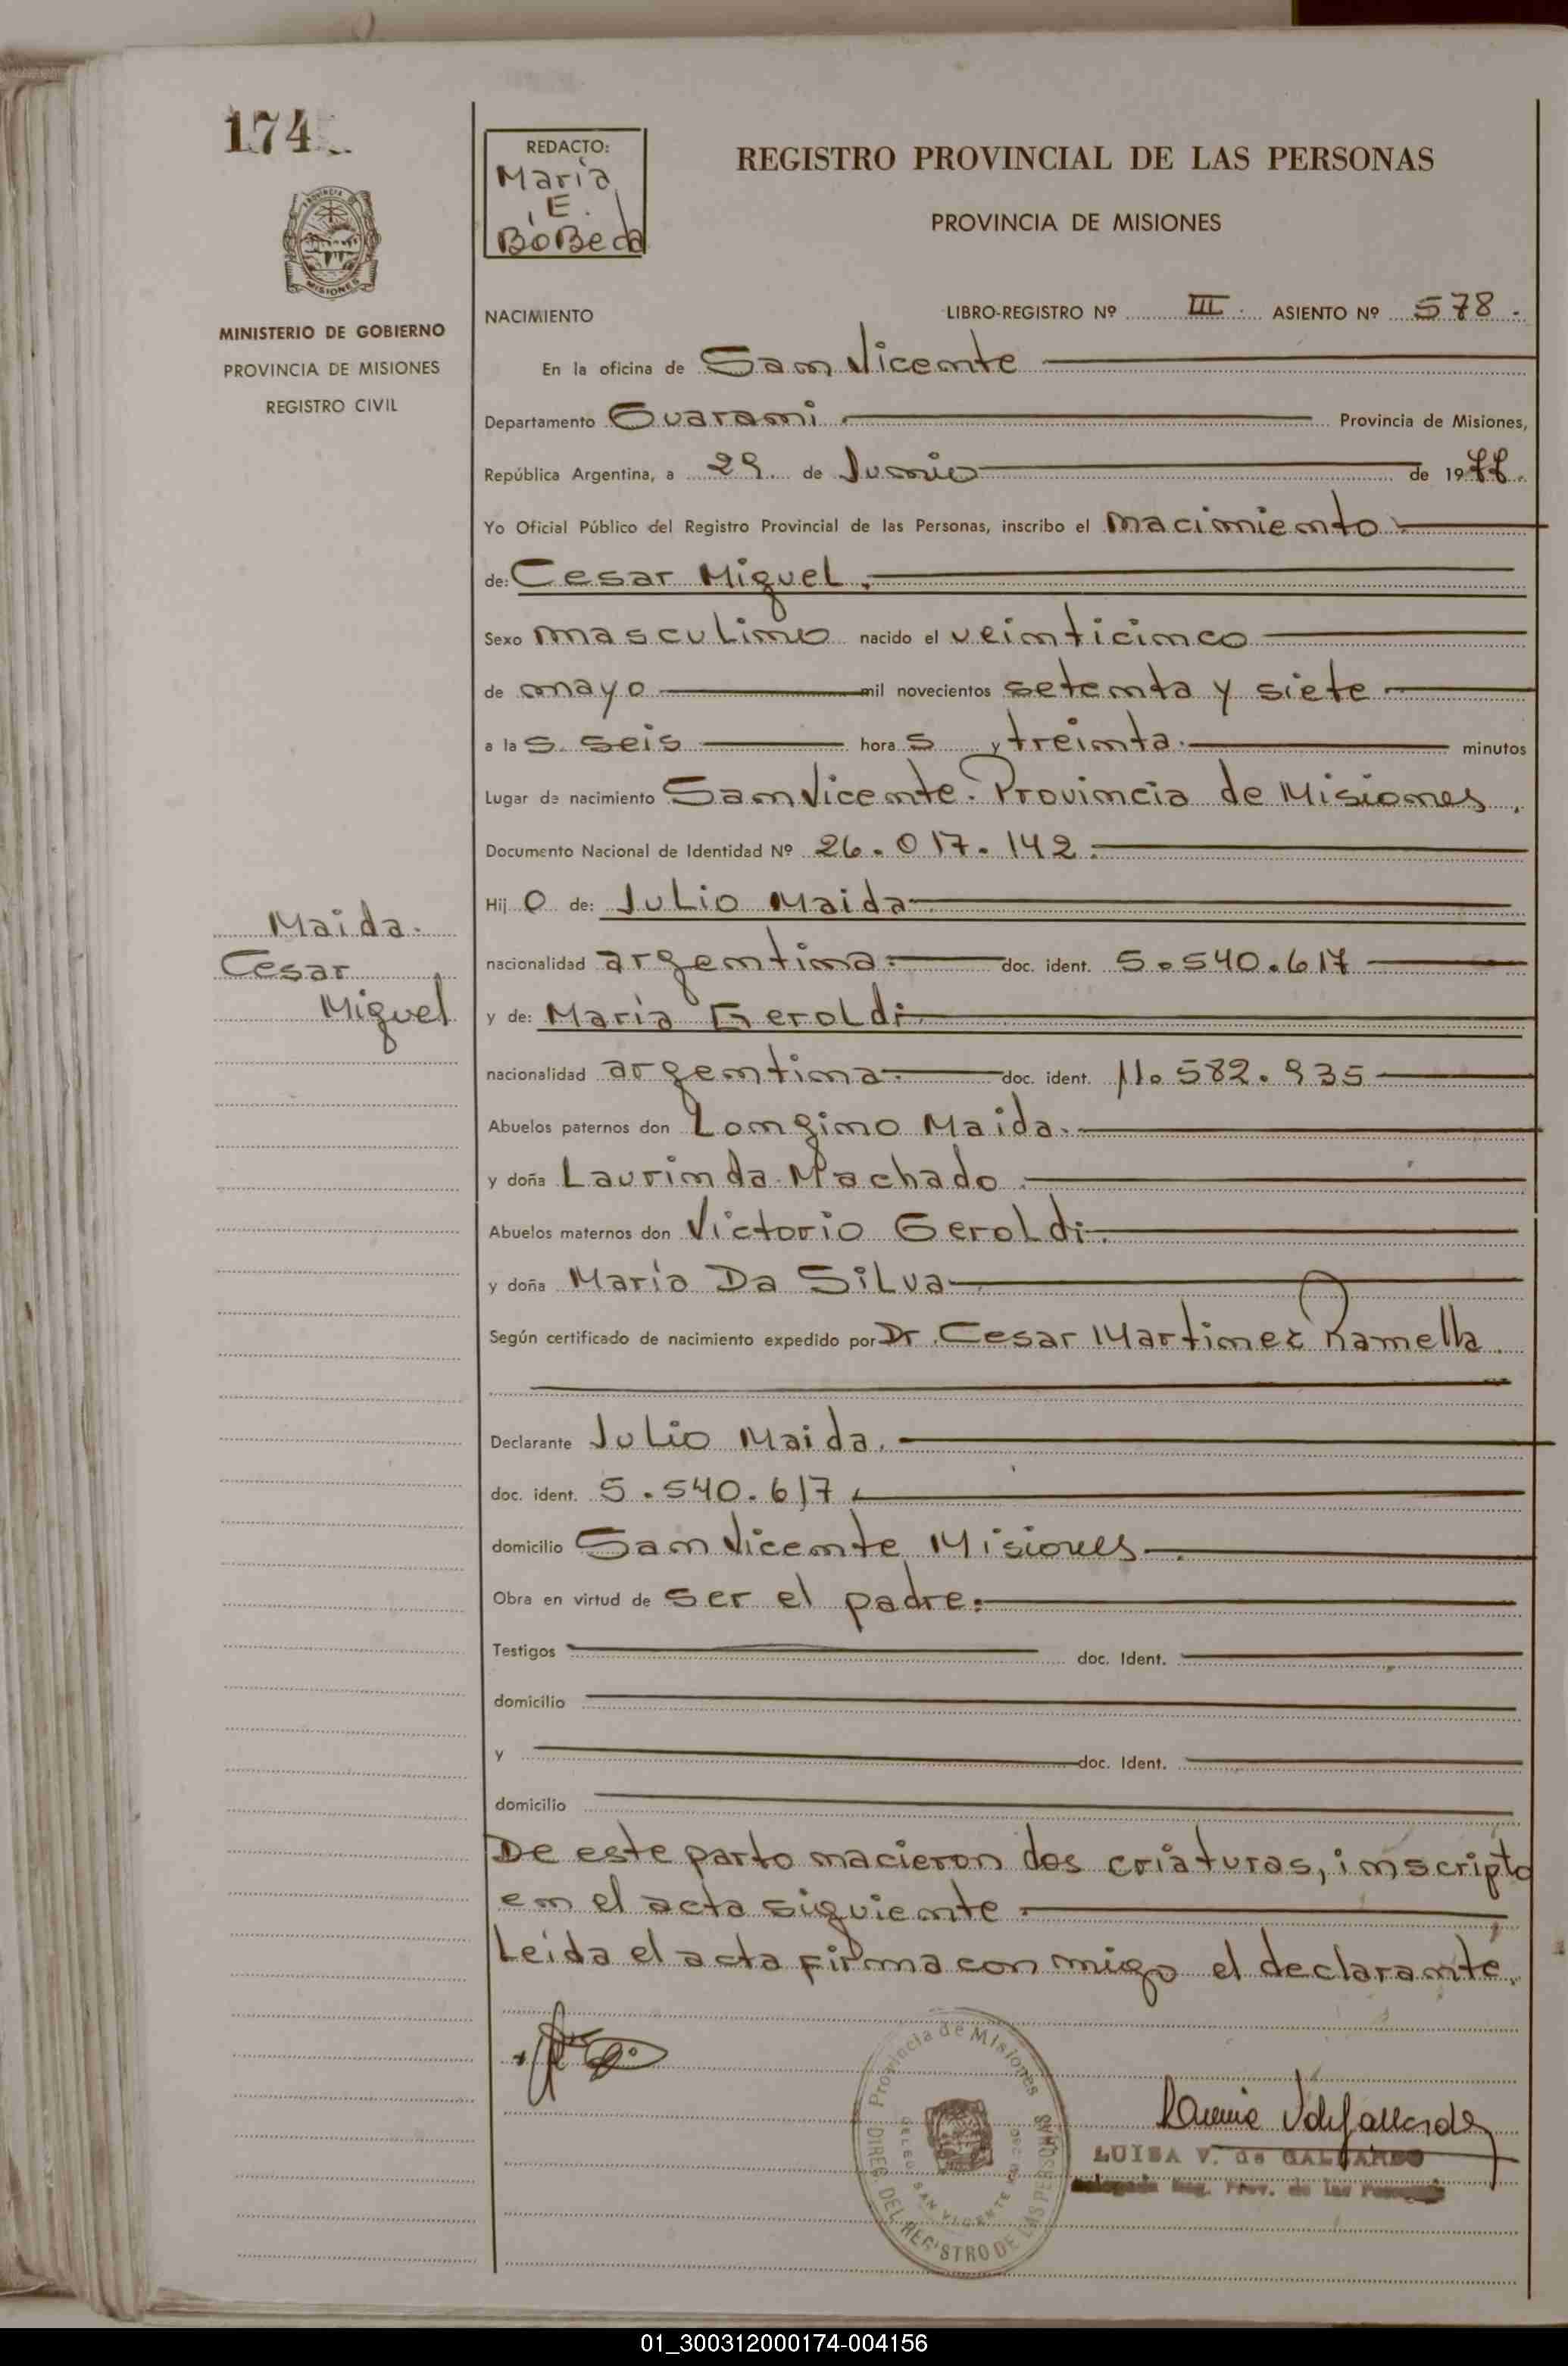 174
REDACTO:
Maria
E.
BoBeda
REGISTRO PROVINCIAL DE LAS PERSONAS
PROVINCIA DE MISIONES
MISIONES
MINISTERIO DE GOBIERNO
PROVINCIA DE MISIONES
REGISTRO CIVIL
NACIMIENTO LIBRO-REGISTRO Nº III ASIENTO Nº 578.
En la oficina de San Vicente
Departamento Guarani Provincia de Misiones,
República Argentina, a 29 de Junio de 1977.
Yo Oficial Público del Registro Provincial de las Personas, inscribo el nacimiento
de: Cesar Miguel.
Sexo masculino nacido el veinticinco
de mayo mil novecientos setenta y siete
a las seis horas y treinta minutos
Lugar de nacimiento San Vicente. Provincia de Misiones.
Documento Nacional de Identidad Nº 26.017.142.
Hijo de: Julio Maida
nacionalidad argentina doc. ident. 5.540.617
y de: Maria Geroldi
nacionalidad argentina doc. ident. 11.582.935
Abuelos paternos don Longino Maida.
y doña Laurinda Machado.
Abuelos maternos don Victorio Geroldi.
y doña Maria Da Silva
Según certificado de nacimiento expedido por Dr. Cesar Martinez Ramella.
Declarante Julio Maida.
doc. ident. 5.540.617
domicilio San Vicente Misiones
Obra en virtud de ser el padre.
Testigos doc. Ident.
domicilio
y doc. Ident.
domicilio
De este parto nacieron dos criaturas, inscripto
en el acta siguiente.
Leida el acta firma con migo el declarante.
Maida.
Cesar
Miguel
Provincia de Misiones
DIREC. DEL REGISTRO DE LAS PERSONAS
SAN VICENTE
LUISA V. de GALLARDO
Delegada Reg. Prov. de las Personas
01_300312000174-004156